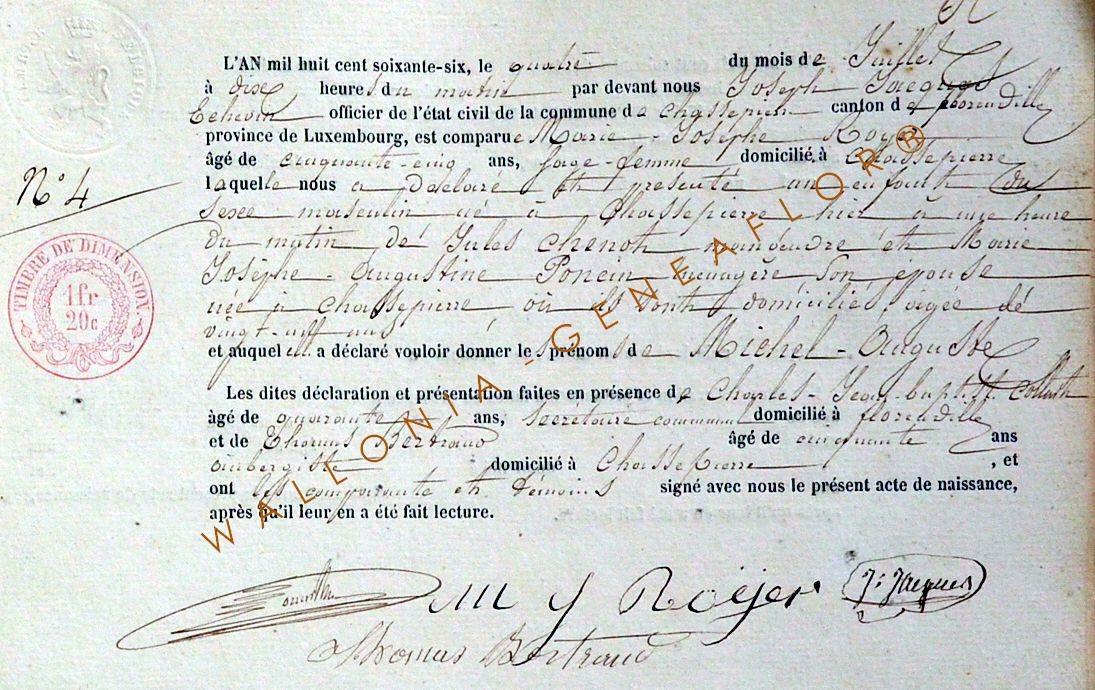 L'AN mil huit cent soixante-six, le quatre du mois de Juillet
à dix heures du matin par devant nous Joseph Jacques
Echevin officier de l'état civil de la commune de Chassepierre canton de florenville
province de Luxembourg, est comparue Marie-Josèphe Royer
âgé de cinquante-cinq ans, sage-femme domicilié, à Chassepierre
laquelle nous a déclaré et présenté un enfant du
N° 4
sexe masculin né à Chassepierre hier à une heure
du matin de Jules Chenot manoeuvre et Marie
Josèphe-Augustine Poncin ménagère son épouse
née à Chassepierre, où ils sont domiciliés, agée de
vingt-neuf ans
et auquel elle a déclaré vouloir donner les prénoms de Michel-Auguste
TIMBRE DE DIMENSION.
1 fr
20 c
Les dites déclaration et présentation faites en présence de Charles-Jean-baptiste
âgé de quarante ans, secrétaire communal domicilié à florenville
et de Thomas Bertrand âgé de cinquante ans
aubergiste domicilié à Chassepierre, et
ont les comparante et témoins signé avec nous le présent acte de naissance,
après qu'il leur en a été fait lecture.
WALLONIA-GENEAFLOR®
M J Roÿer J: Jacques
Thomas Bertrand